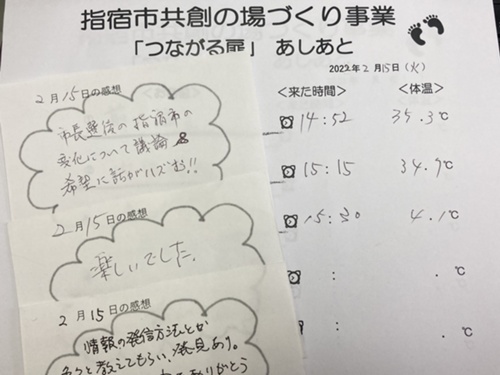 指宿市共創の場づくり事業
「つながる扉」 あしあと
2022年2月15日(火)
<来た時間> <体温>
14:52 35.3℃
15:15 34.9℃
15:30 4.1℃
: .℃
: .℃
2月15日の感想
市長選後の指宿市の
変化について議論
希望に話がハズむ!!
2月15日の感想
楽しいでした.
2月15日の感想
情報の発信方法とか
色々と教えてもらい、発見あり。
ありがとう